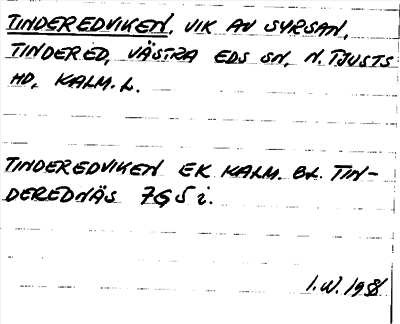 TINDEREDVIKEN, VIK AV SYRSAN,
TINDERED, VÄSTRA EDS SN, N. TJUSTS
HD, KALM. L.
TINDEREDVIKEN EK KALM. BL. TIN-
DEREDNÄS 7G 5 i.
I.W. 1981